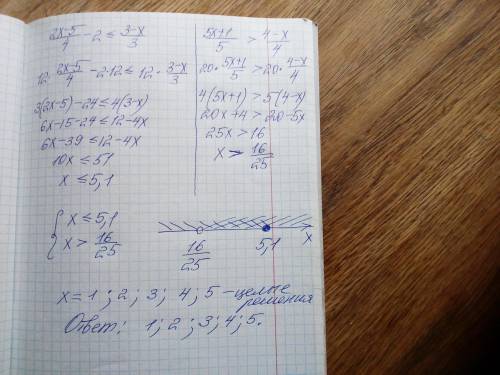 (2x-5)/4 - 2 ≤ (3-x)/3
12 · (2x-5)/4 - 2·12 ≤ 12 · (3-x)/3
3(2x-5)-24 ≤ 4(3-x)
6x-15-24 ≤ 12-4x
6x-39 ≤ 12-4x
10x ≤ 51
x ≤ 5,1
(5x+1)/5 > (4-x)/4
20 · (5x+1)/5 > 20 · (4-x)/4
4(5x+1) > 5(4-x)
20x+4 > 20-5x
25x > 16
x > 16/25
{ x ≤ 5,1
x > 16/25
16/25 5,1 x
x = 1 ; 2 ; 3 ; 4 ; 5 - целые
решения
Ответ: 1 ; 2 ; 3 ; 4 ; 5.